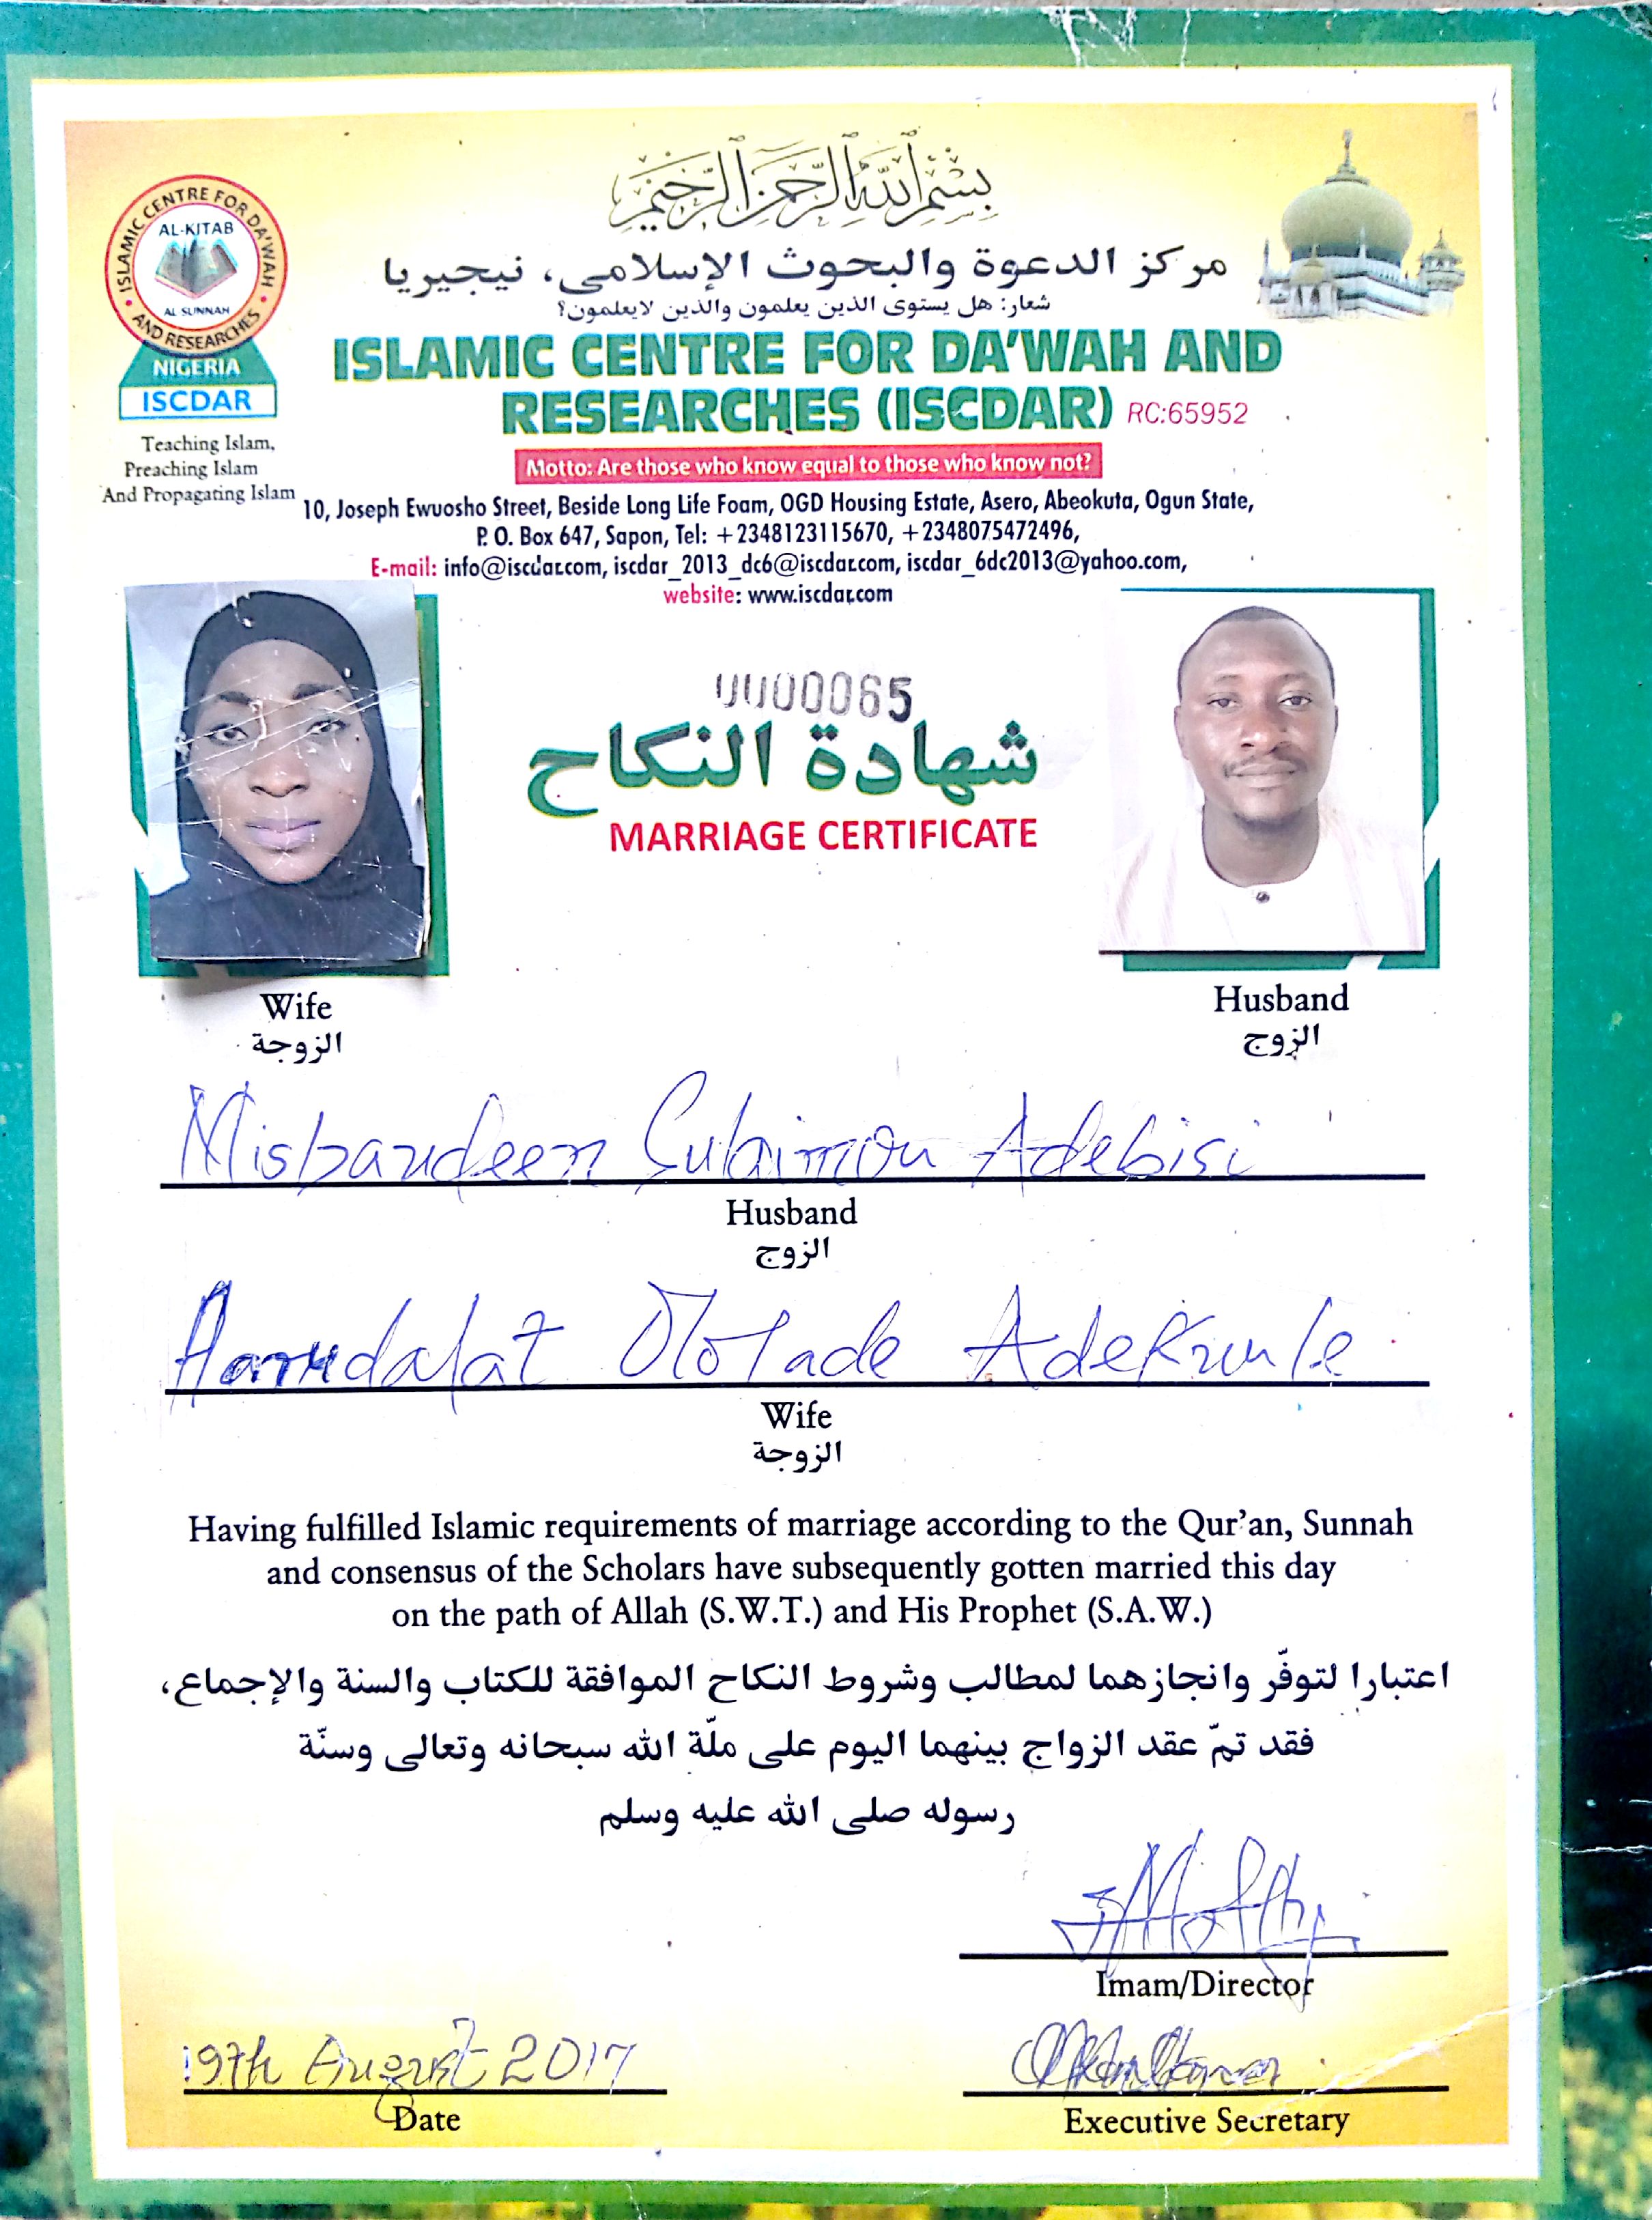 بسم الله الرحمن الرحيم
مركز الدعوة والبحوث الإسلامى، نيجيريا
شعار: هل يستوى الذين يعلمون والذين لايعلمون؟
ISLAMIC CENTRE FOR DA'WAH
AND RESEARCHES
AL-KITAB
AL SUNNAH
NIGERIA
ISCDAR
Teaching Islam,
Preaching Islam
And Propagating Islam
ISLAMIC CENTRE FOR DA'WAH AND
RESEARCHES (ISCDAR) RC:65952
Motto: Are those who know equal to those who know not?
10, Joseph Ewuosho Street, Beside Long Life Foam, OGD Housing Estate, Asero, Abeokuta, Ogun State,
P. O. Box 647, Sapon, Tel: +2348123115670, +2348075472496,
E-mail: info@iscdar.com, iscdar_2013_dc6@iscdar.com, iscdar_6dc2013@yahoo.com,
website: www.iscdar.com
0000065
شهادة النكاح
MARRIAGE CERTIFICATE
Wife
الزوجة
Husband
الزوج
Misbaudeen Adebisi
Husband
الزوج
Ololade Adekunle
Wife
الزوجة
Having fulfilled Islamic requirements of marriage according to the Qur'an, Sunnah
and consensus of the Scholars have subsequently gotten married this day
on the path of Allah (S.W.T.) and His Prophet (S.A.W.)
اعتبارا لتوفّر وانجازهما لمطالب وشروط النكاح الموافقة للكتاب والسنة والإجماع،
فقد تمّ عقد الزواج بينهما اليوم على ملّة الله سبحانه وتعالى وسنّة
رسوله صلى الله عليه وسلم
Imam/Director
19th August 2017
Date
Executive Secretary